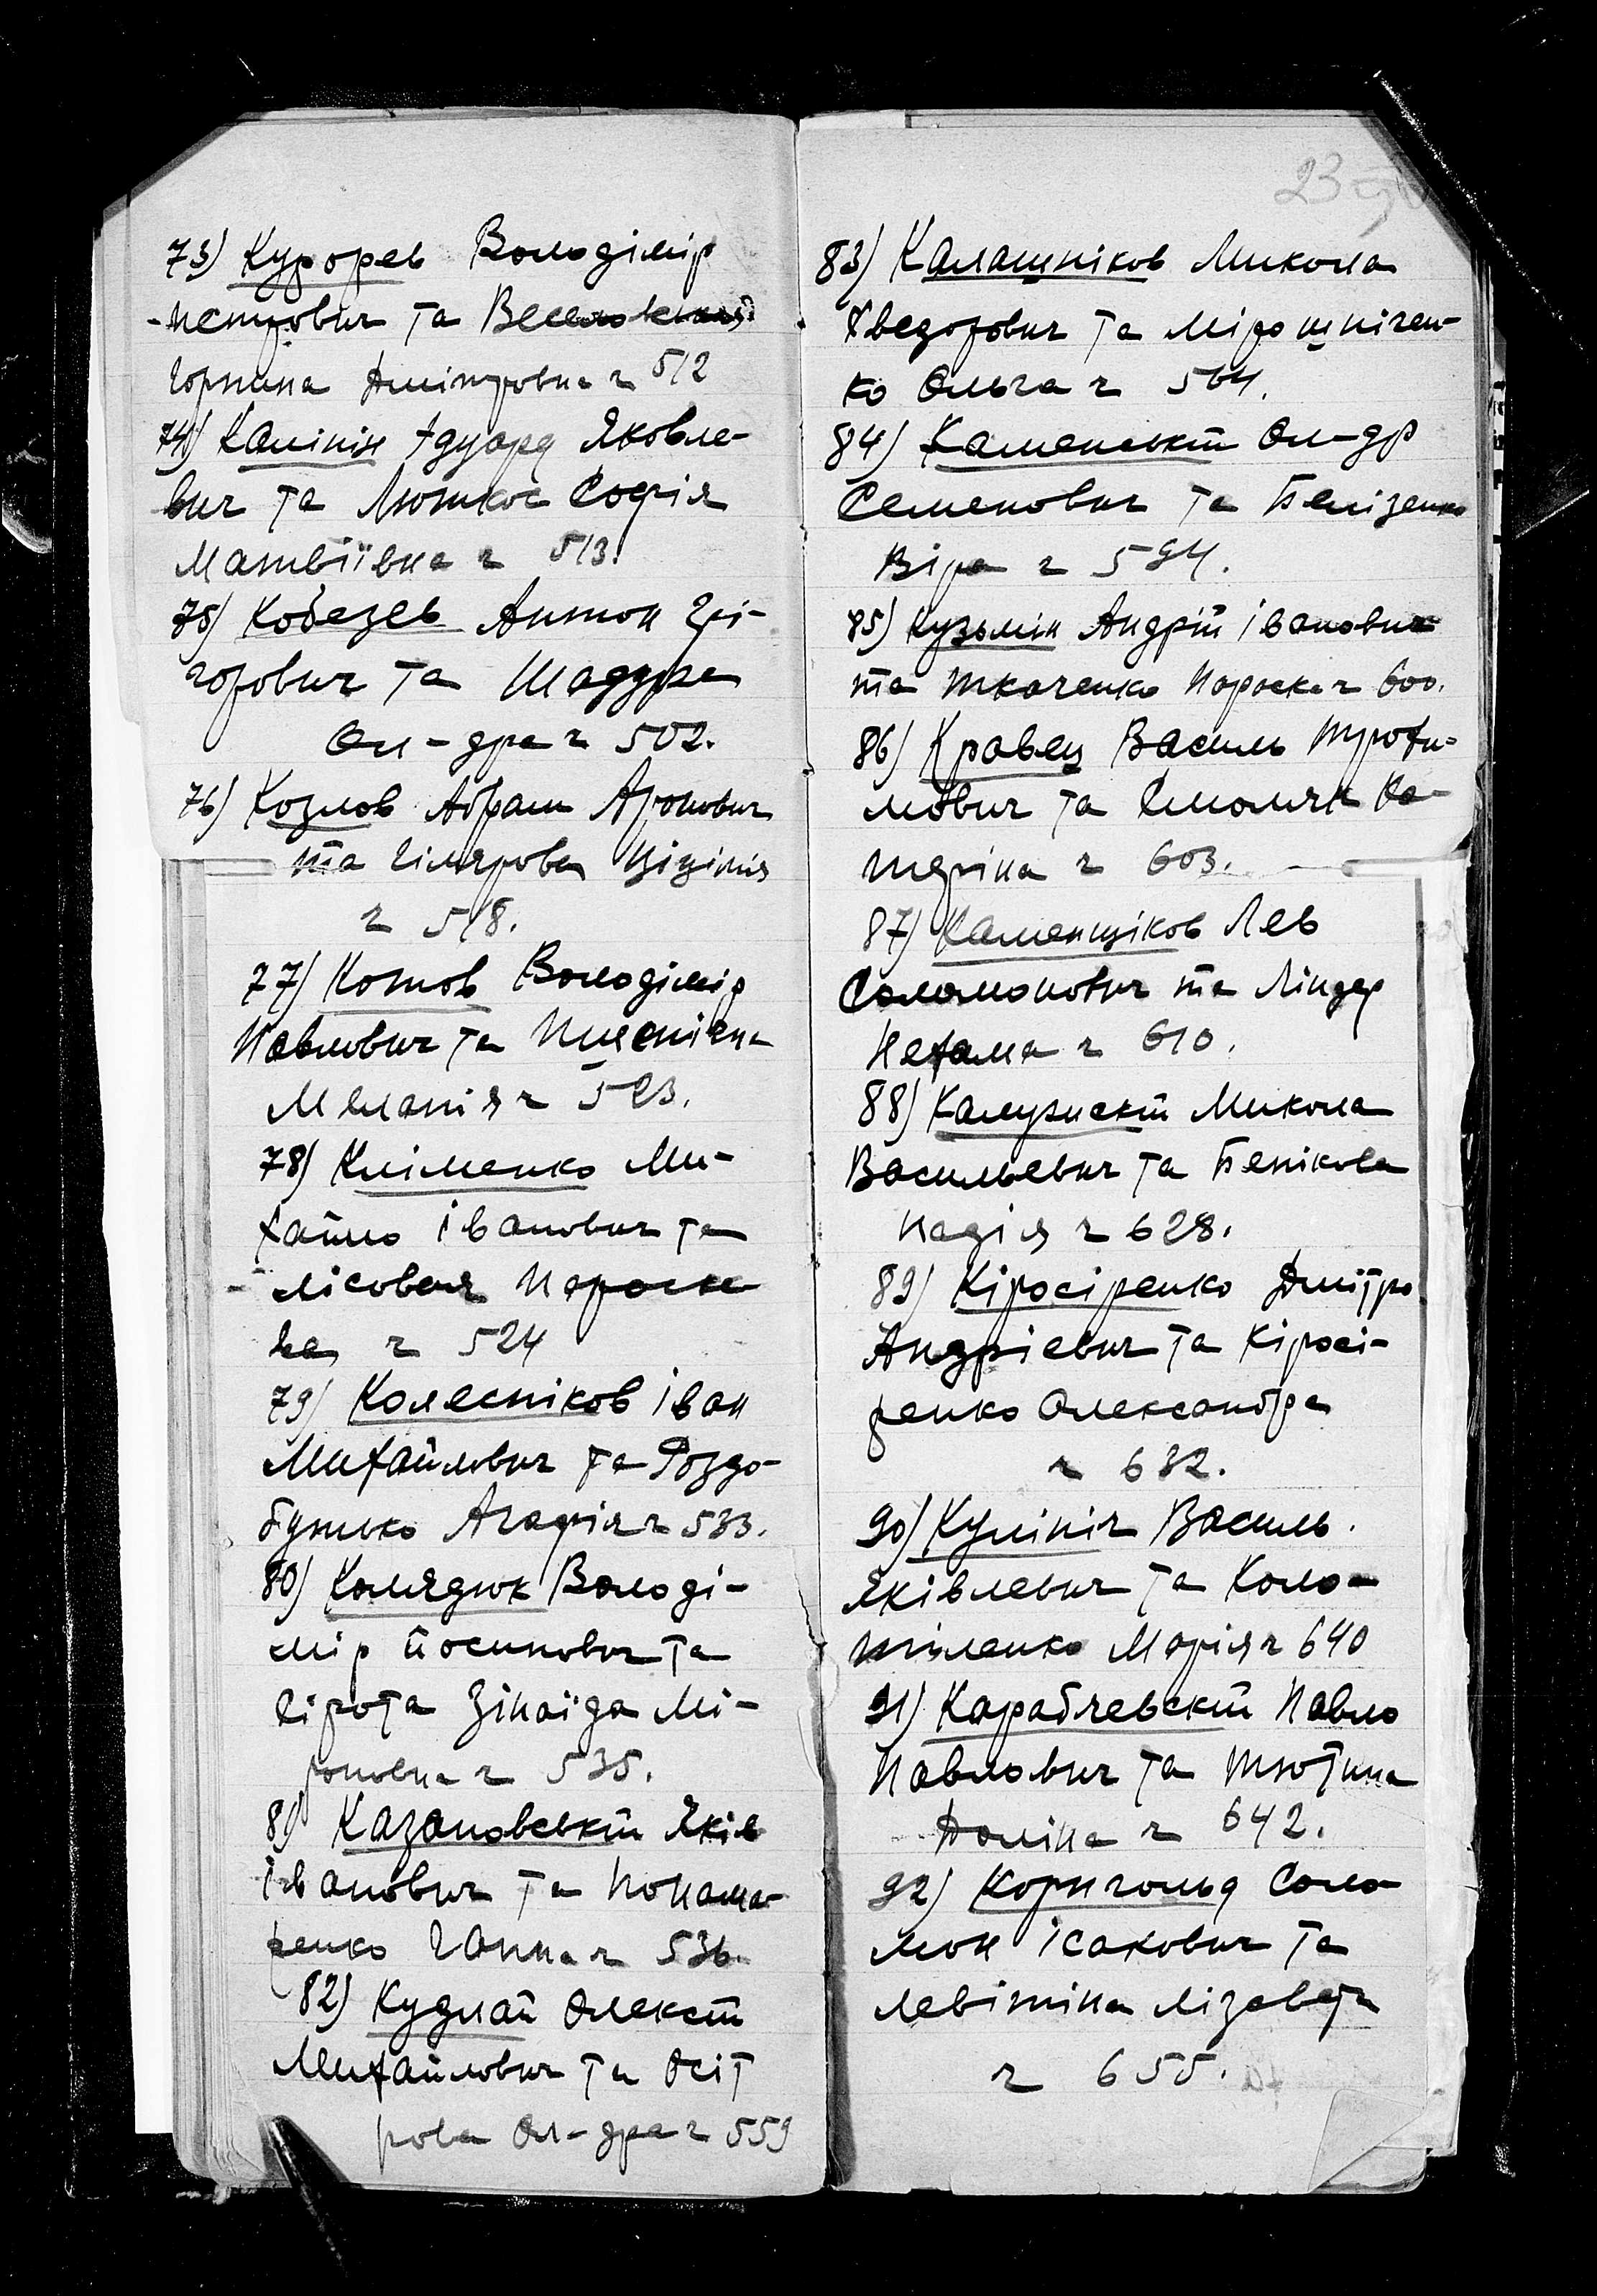 73) Курорев Володімір
Петрович та Веселовськая
Горпина Дмітровна ч 512
74) Калінін Едуард Яковле-
вич та Люткос Софія
Матвіївна ч 513.
75) Кобезев Антон Грі-
горович та Шадура
Ол-дра ч 502.
76) Козлов Абрам Аронович
та Гілярова Ціцілія
ч 518.
77) Котов Володімір
Павлович та Пшенічна
Меланія ч 523.
78) Кліменко Ми-
хайло Іванович та
Лісовая Параске
ва ч 524
79) Колесніков Іван
Михайлович та Роздо-
бутько Агафія ч 533.
80) Колядюк Володі-
мір Йосипович та
Гірота Зінаїда Мі-
роновна ч 535.
81) Казановський Яків
Іванович та Понома-
ренко Ганна ч 536.
82) Кудлай Олексій
Михайлович та Осіт
рова Ол-дра ч 559
23
83) Калашніков Микола
Хведорович та Мірошнічен-
ко Ольга ч 564.
84) Каменський Ол-др
Семенович та Белізенко
Віра ч 594.
85) Кузьмін Андрій Іванович
та Ткаченко Параска ч 600.
86) Кравец Василь Трохи-
мович та Смоляк Ка-
теріна ч 603.
87) Каменщіков Лев
Соломонович та Ліндер
Нехама ч 610.
88) Калузнский Микола
Васильевич та Бенікова
Надія ч 628.
89) Кіросіренко Дмітро
Андріевич та Кіросі-
ренко Олександра
ч 632.
90) Кулініч Василь
Яківлевич та Коло-
тіленко Марія ч 640
91) Карабчевский Павло
Павлович та Тютина
Доліна ч 642.
92) Корнгольд Соло-
мон Ісакович та
Левітіна Лізавета
ч 655.